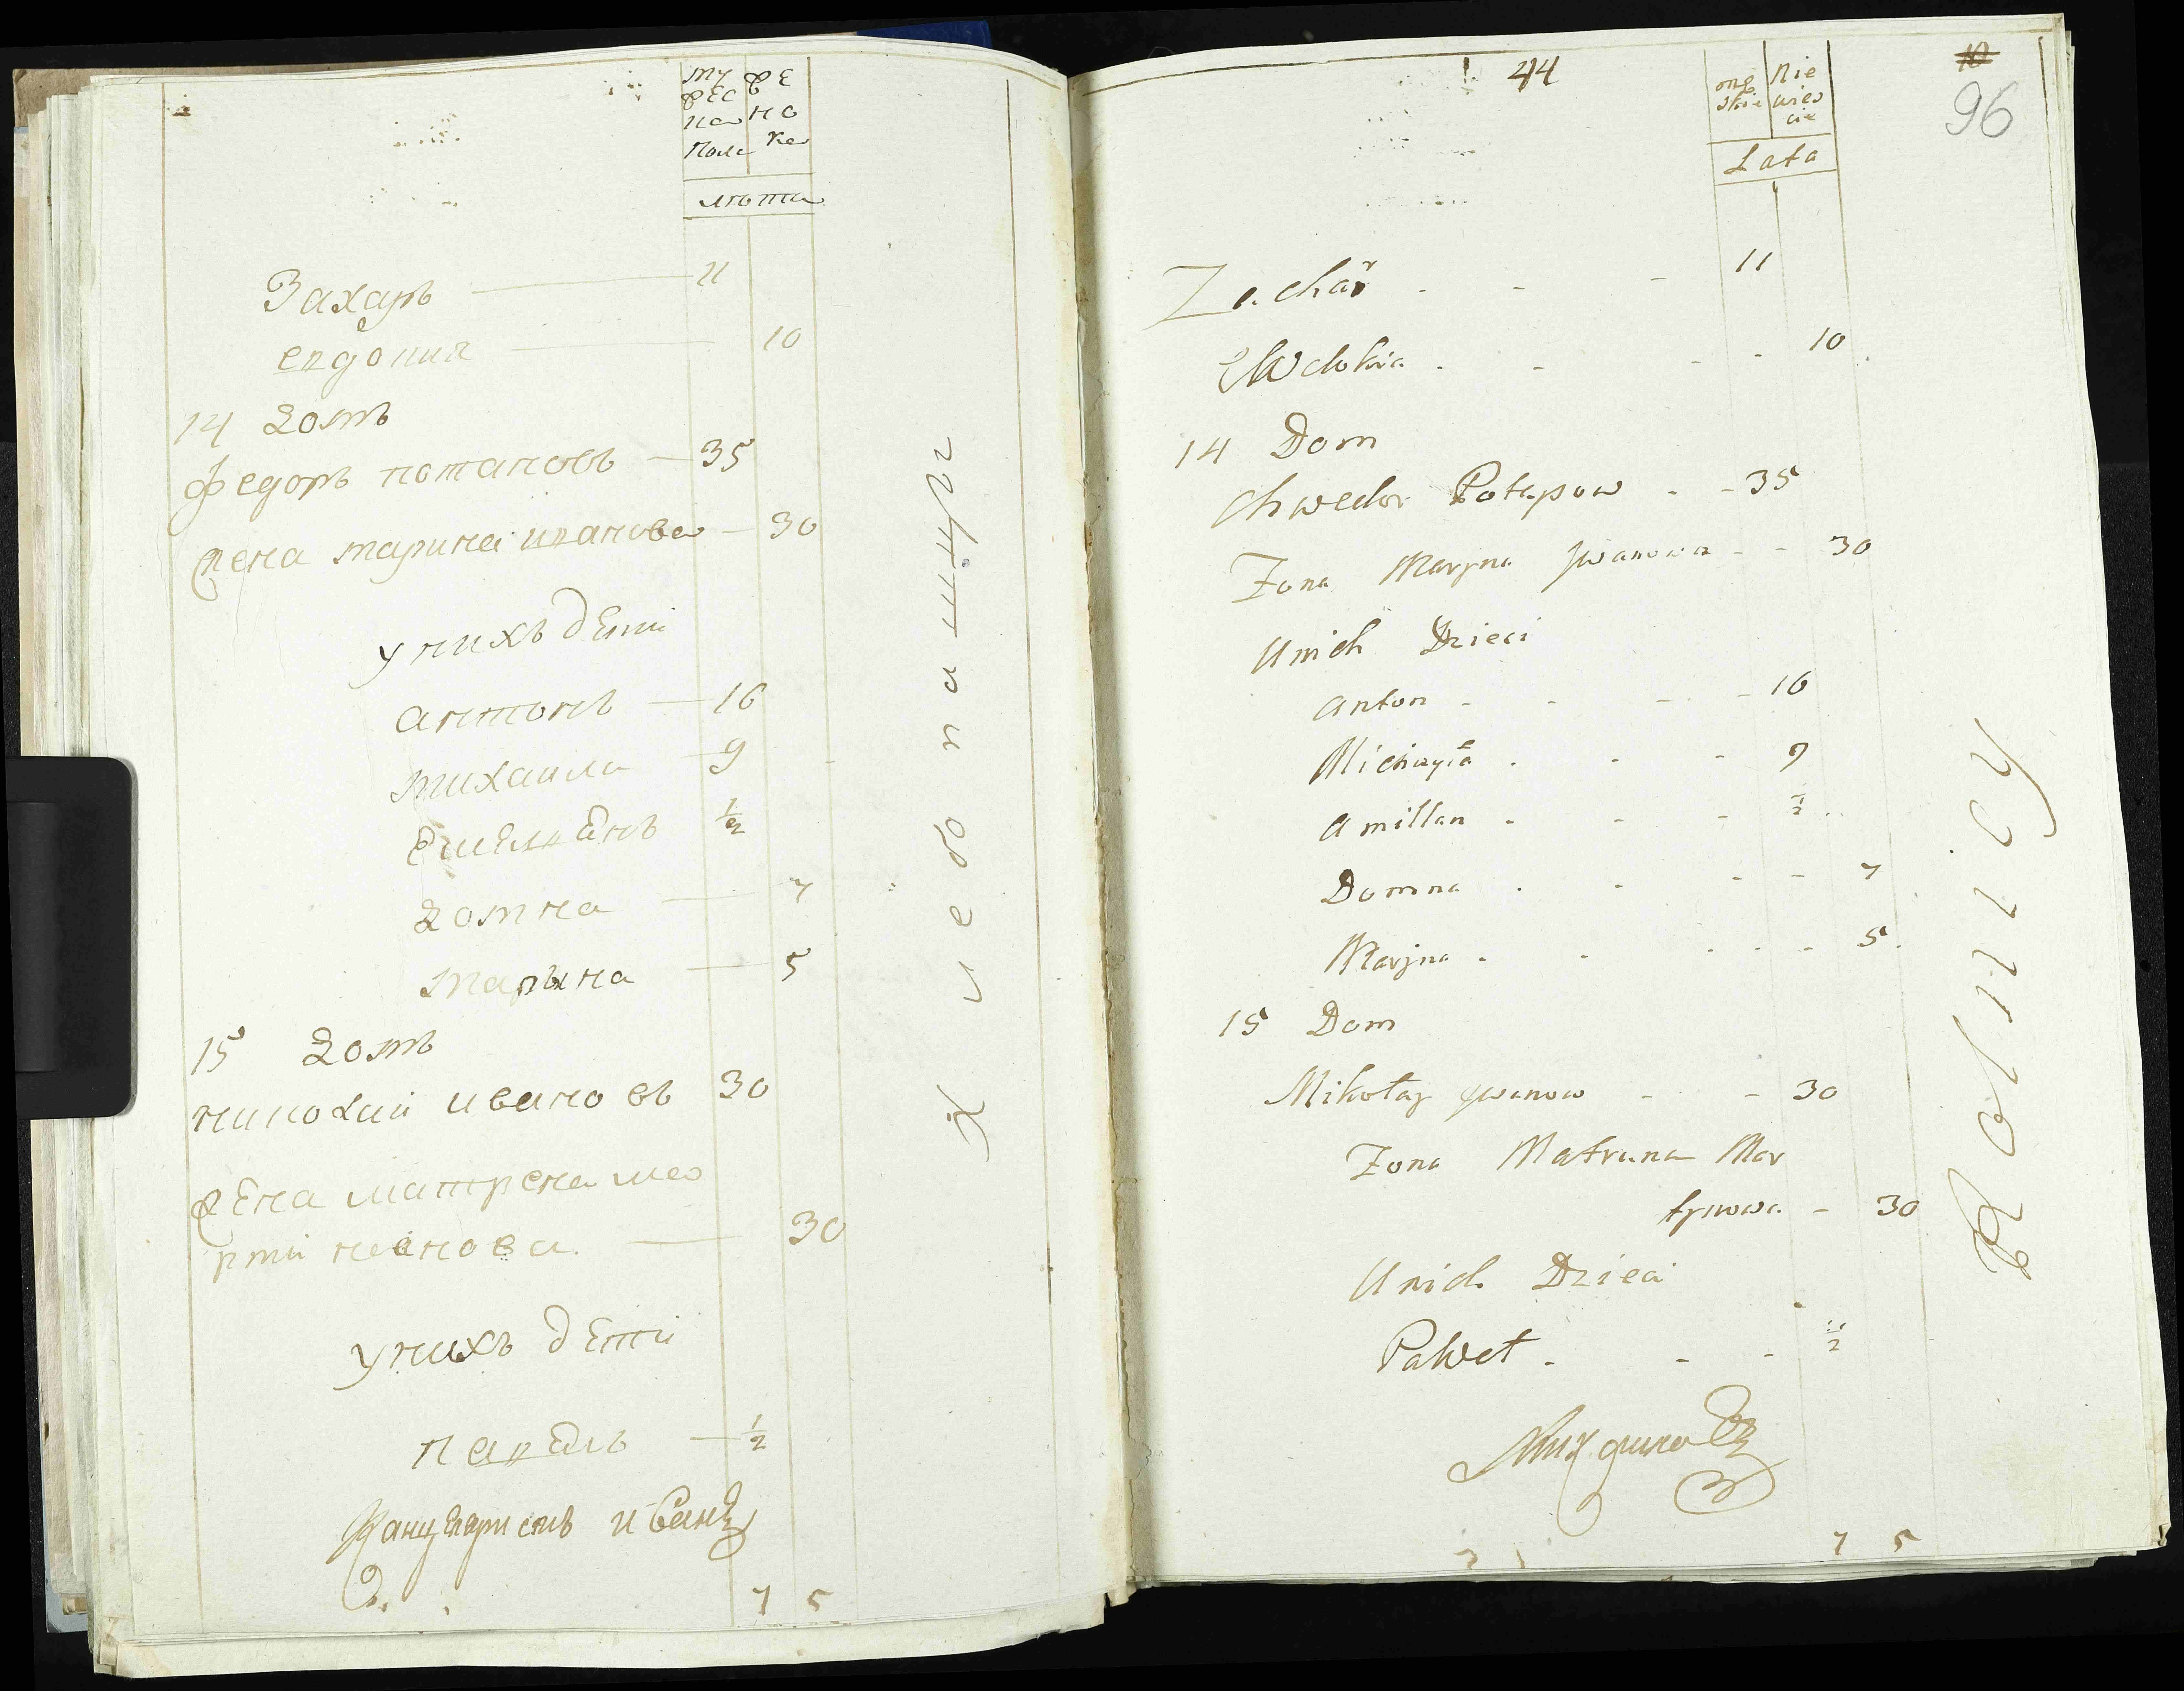 му
жес
ка
Пола
же
нс
ка
лѣта
Захаръ 11
евдокия 10
14 Домъ
федоръ потаповъ 35
жена марина иванова 30
у нихъ дети
антонъ 16
михаила 9
Емельянъ 1/2
Домна 7
марына 5
15 Домъ
николаи ивановъ 30
жена матрена ма
30
у нихъ дети
павелъ 1/2
Канцеляристъ Иванъ
7 5
44
96
męskie
Niewieście
Lata
Zachar 11
Ewdokia 10
14 Dom
Chwedor Potapow 35
Żona Maryna Jwanowa 30
Unich Dzieci
Anton 16
Michayła 9
Amillan 1/2
Domna 7
Maryna 5
15 Dom
Mikołay Jwanow 30
Żona Matruna Mar
tynowa 30
Unich Dzieci
Paweł 1/2
7 5